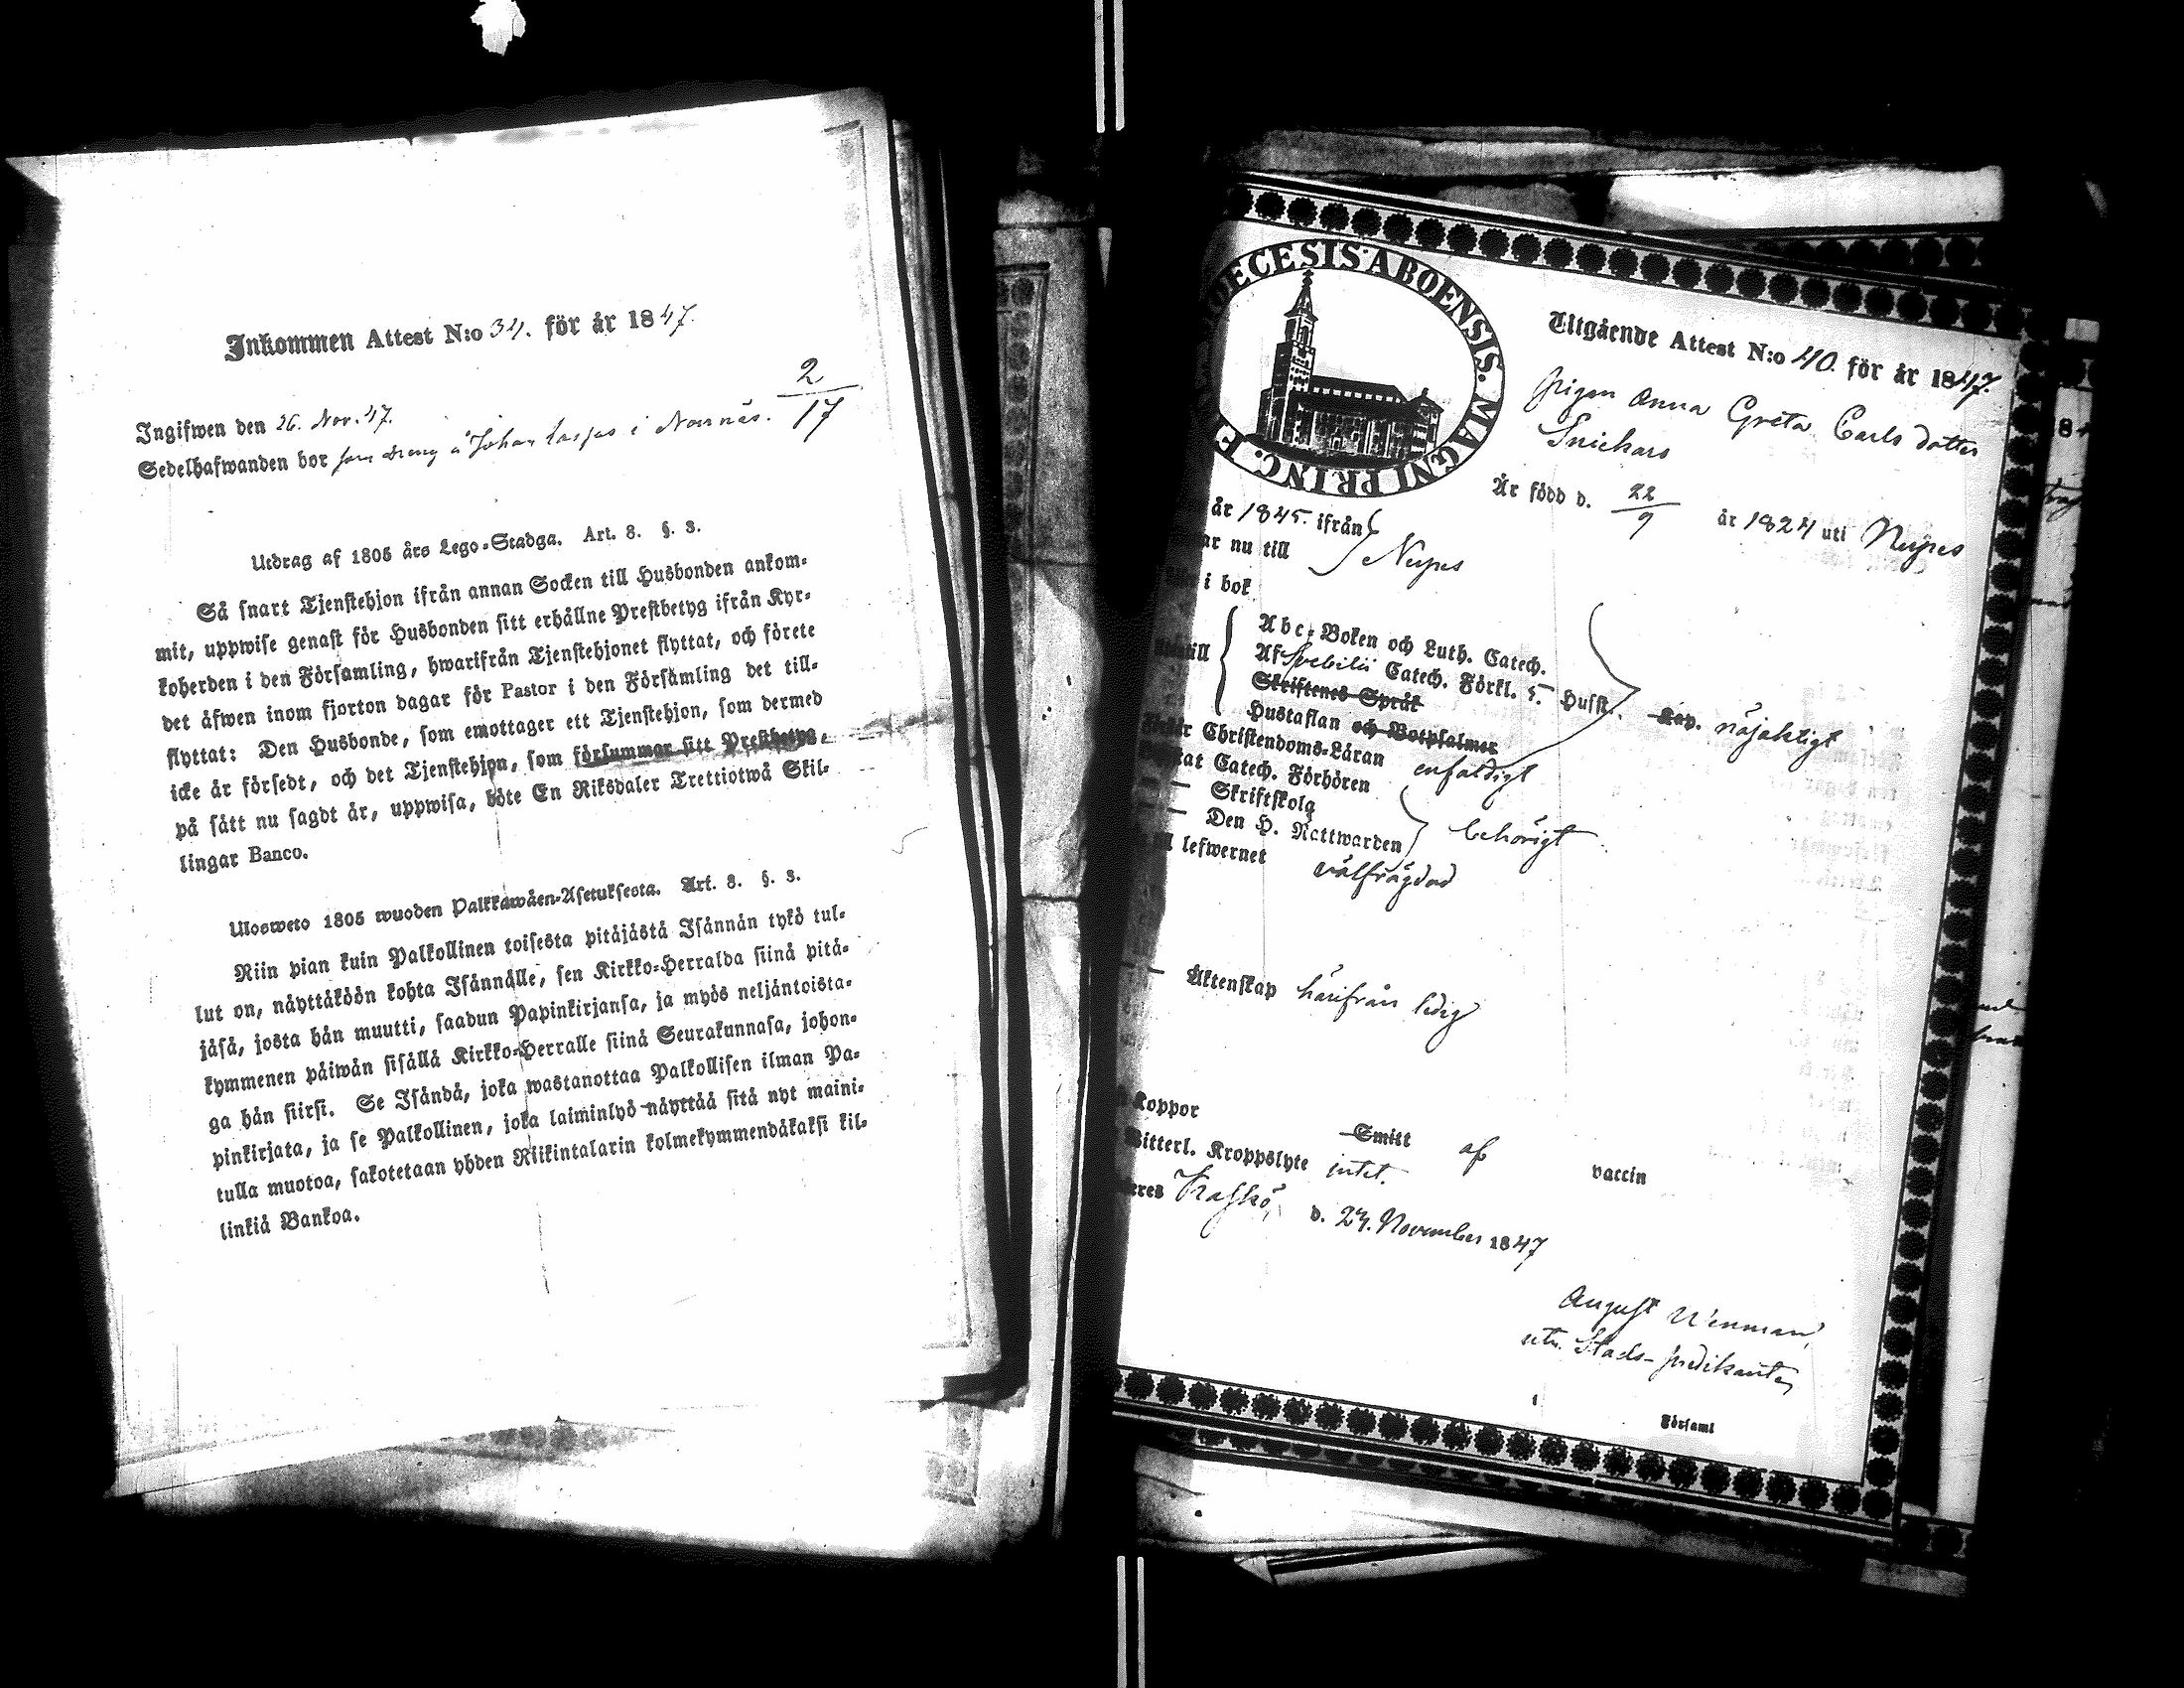 Inkommen Attest N:o 34. för år 1847.
Ingifwen den 26. Nov. 47.
Sedelhafwanden bor som dreng å Johan i Norrnäs. 2/17
Utdrag af 1805 års Lego-Stadga. Art. 8. §. 3.
Så snart Tjenstehjon ifrån annan Socken till Husbonden ankom-
mit, uppwise genast för Husbonden sitt erhållne Prestbetyg ifrån Kyr-
koherden i den Församling, hwarifrån Tjenstehjonet flyttat, och förete
det äfwen inom fjorton dagar för Pastor i den Församling det till-
flyttat: Den Husbonde, som emottager ett Tjenstehjon, som dermed
icke är försedt, och det Tjenstehjon, som försummar sitt Prestbetyg,
på sätt nu sagdt är, uppwisa, böte En Riksdaler Trettiotwå Skil-
lingar Banco.
Ulosweto 1805 wuoden Palkkawäen-Asetuksesta. Art. 8. §. 3.
Niin pian kuin Palkollinen toisesta pitäjästä Isännän tykö tul-
lut on, näyttäköön kohta Isännälle, sen Kirkko-Herralda siinä pitä-
jäsä, josta hän muutti, saadun Papinkirjansa, ja myös neljäntoista-
kymmenen päiwän sisällä Kirkko-Herralle siinä Seurakunnasa, johon-
ga hän siirsi. Se Isändä, joka wastanottaa Palkollisen ilman Pa-
pinkirjata, ja se Palkollinen, joka laiminlyö näyttää sitä nyt maini-
tulla muotoa, sakotetaan yhden Riikintalarin kolmekymmendäkaksi kil-
linkiä Bankoa.
DIOECESIS ABOENSIS. MAGNI PRINC. F
Utgående Attest N:o 40. för år 1847.
Pigan Anna Greta Carls dotter
Snickars
Är född d. 22/9 år 1824 uti Nerpes
år 1845. ifrån
ar nu till Nerpes
i bok
till
Abc-Boken och Luth. Catech.
Af Svebilii Catech. Förkl. 5. Husst. Kap. nöjaktigt
Skriftenes Språk
Hustaflan och Botpsalmer
Christendoms-Läran enfaldigt
Catech. Förhören
— Skriftskola
— Den H. Nattwarden behörigt
lefwernet välfrägdad
— Äktenskap härifrån ledig
Koppor Smitt af vaccin
Witterl. Kroppslyte intet.
Kaskö, d. 24. November 1847
August Wenman,
utn. Stads-predikant
Församl